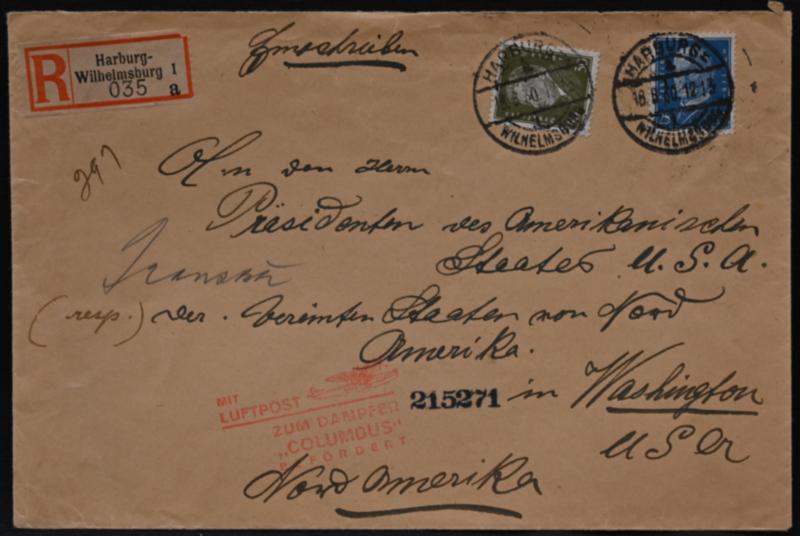 R
Harburg-
Wilhelmsburg 1
035 a
Einschreiben
HARBURG=
WILHELMSBURG
HARBURG=
18.8.30.12-13
WILHELMSBURG
297
An den Herrn
Präsidenten des Amerikanischen
Staates U.S.A.
(resp.) der Vereinten Staaten von Nord
Amerika.
MIT
LUFTPOST
ZUM DAMPFER
„COLUMBUS"
BEFÖRDERT
215271
in Washington
USA
Nord Amerika